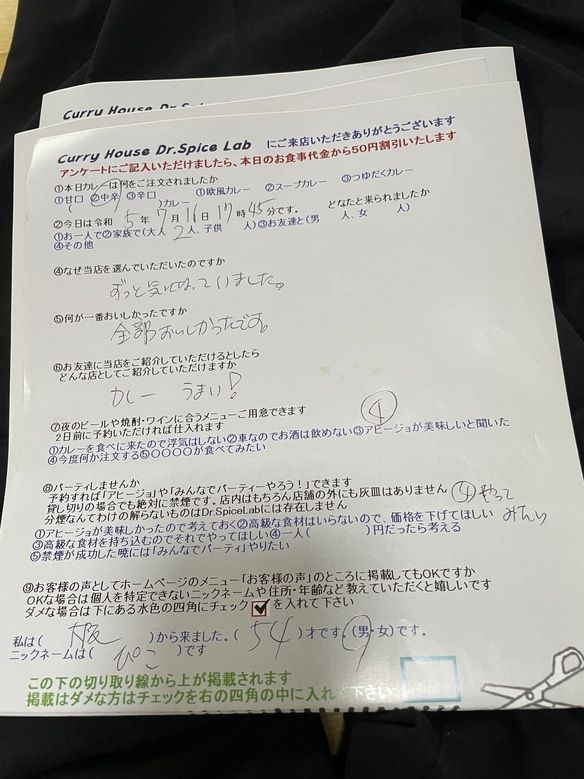 Curry House Dr.Spice Lab
Curry House Dr.Spice Lab にご来店いただきありがとうございます
アンケートにご記入いただけましたら、本日のお食事代金から50円割引いたします
①本日カレーは何をご注文されましたか
①甘口 ②中辛 ③辛口 ①欧風カレー ②スープカレー ③つゆだくカレー
( )カレー
②今日は令和 5年 7月 16日 17時 45分です。 どなたと来られましたか
①お一人で②家族で(大人 2人、子供 人)③お友達と(男 人、女 人)
④その他
④なぜ当店を選んでいただいたのですか
ずっと気になっていました。
⑤何が一番おいしかったですか
全部おいしかったです。
⑥お友達に当店をご紹介していただけるとしたら
どんな店としてご紹介していただけますか
カレー うまい!
⑦夜のビールや焼酎・ワインに合うメニューご用意できます ④
2日前に予約いただければ仕入れます
①カレーを食べに来たので浮気はしない②車なのでお酒は飲めない③アヒージョが美味しいと聞いた
④今度何か注文する⑤〇〇〇〇が食べてみたい
⑧パーティしませんか
予約すれば「アヒージョ」や「みんなでパーティーやろう!」できます
貸し切りの場合でも絶対に禁煙です。店内はもちろん店舗の外にも灰皿はありません ④やって
分煙なんてわけの解らないものはDr.SpiceLabには存在しません みたい
①アヒージョが美味しかったので考えておく②高級な食材はいらないので、価格を下げてほしい
③高級な食材を持ち込むのでそれでやってほしい④一人( )円だったら考える
⑤禁煙が成功した暁には「みんなでパーティ」やりたい
⑨お客様の声としてホームページのメニュー「お客様の声」のところに掲載してもOKですか
OKな場合は個人を特定できないニックネームや住所・年齢など教えていただくと嬉しいです
ダメな場合は下にある水色の四角にチェック を入れて下さい
私は( 大阪 )から来ました。( 54 )才です。(男・女)です。
ニックネームは( ぴこ )です
この下の切り取り線から上が掲載されます
掲載はダメな方はチェックを右の四角の中に入れて下さい